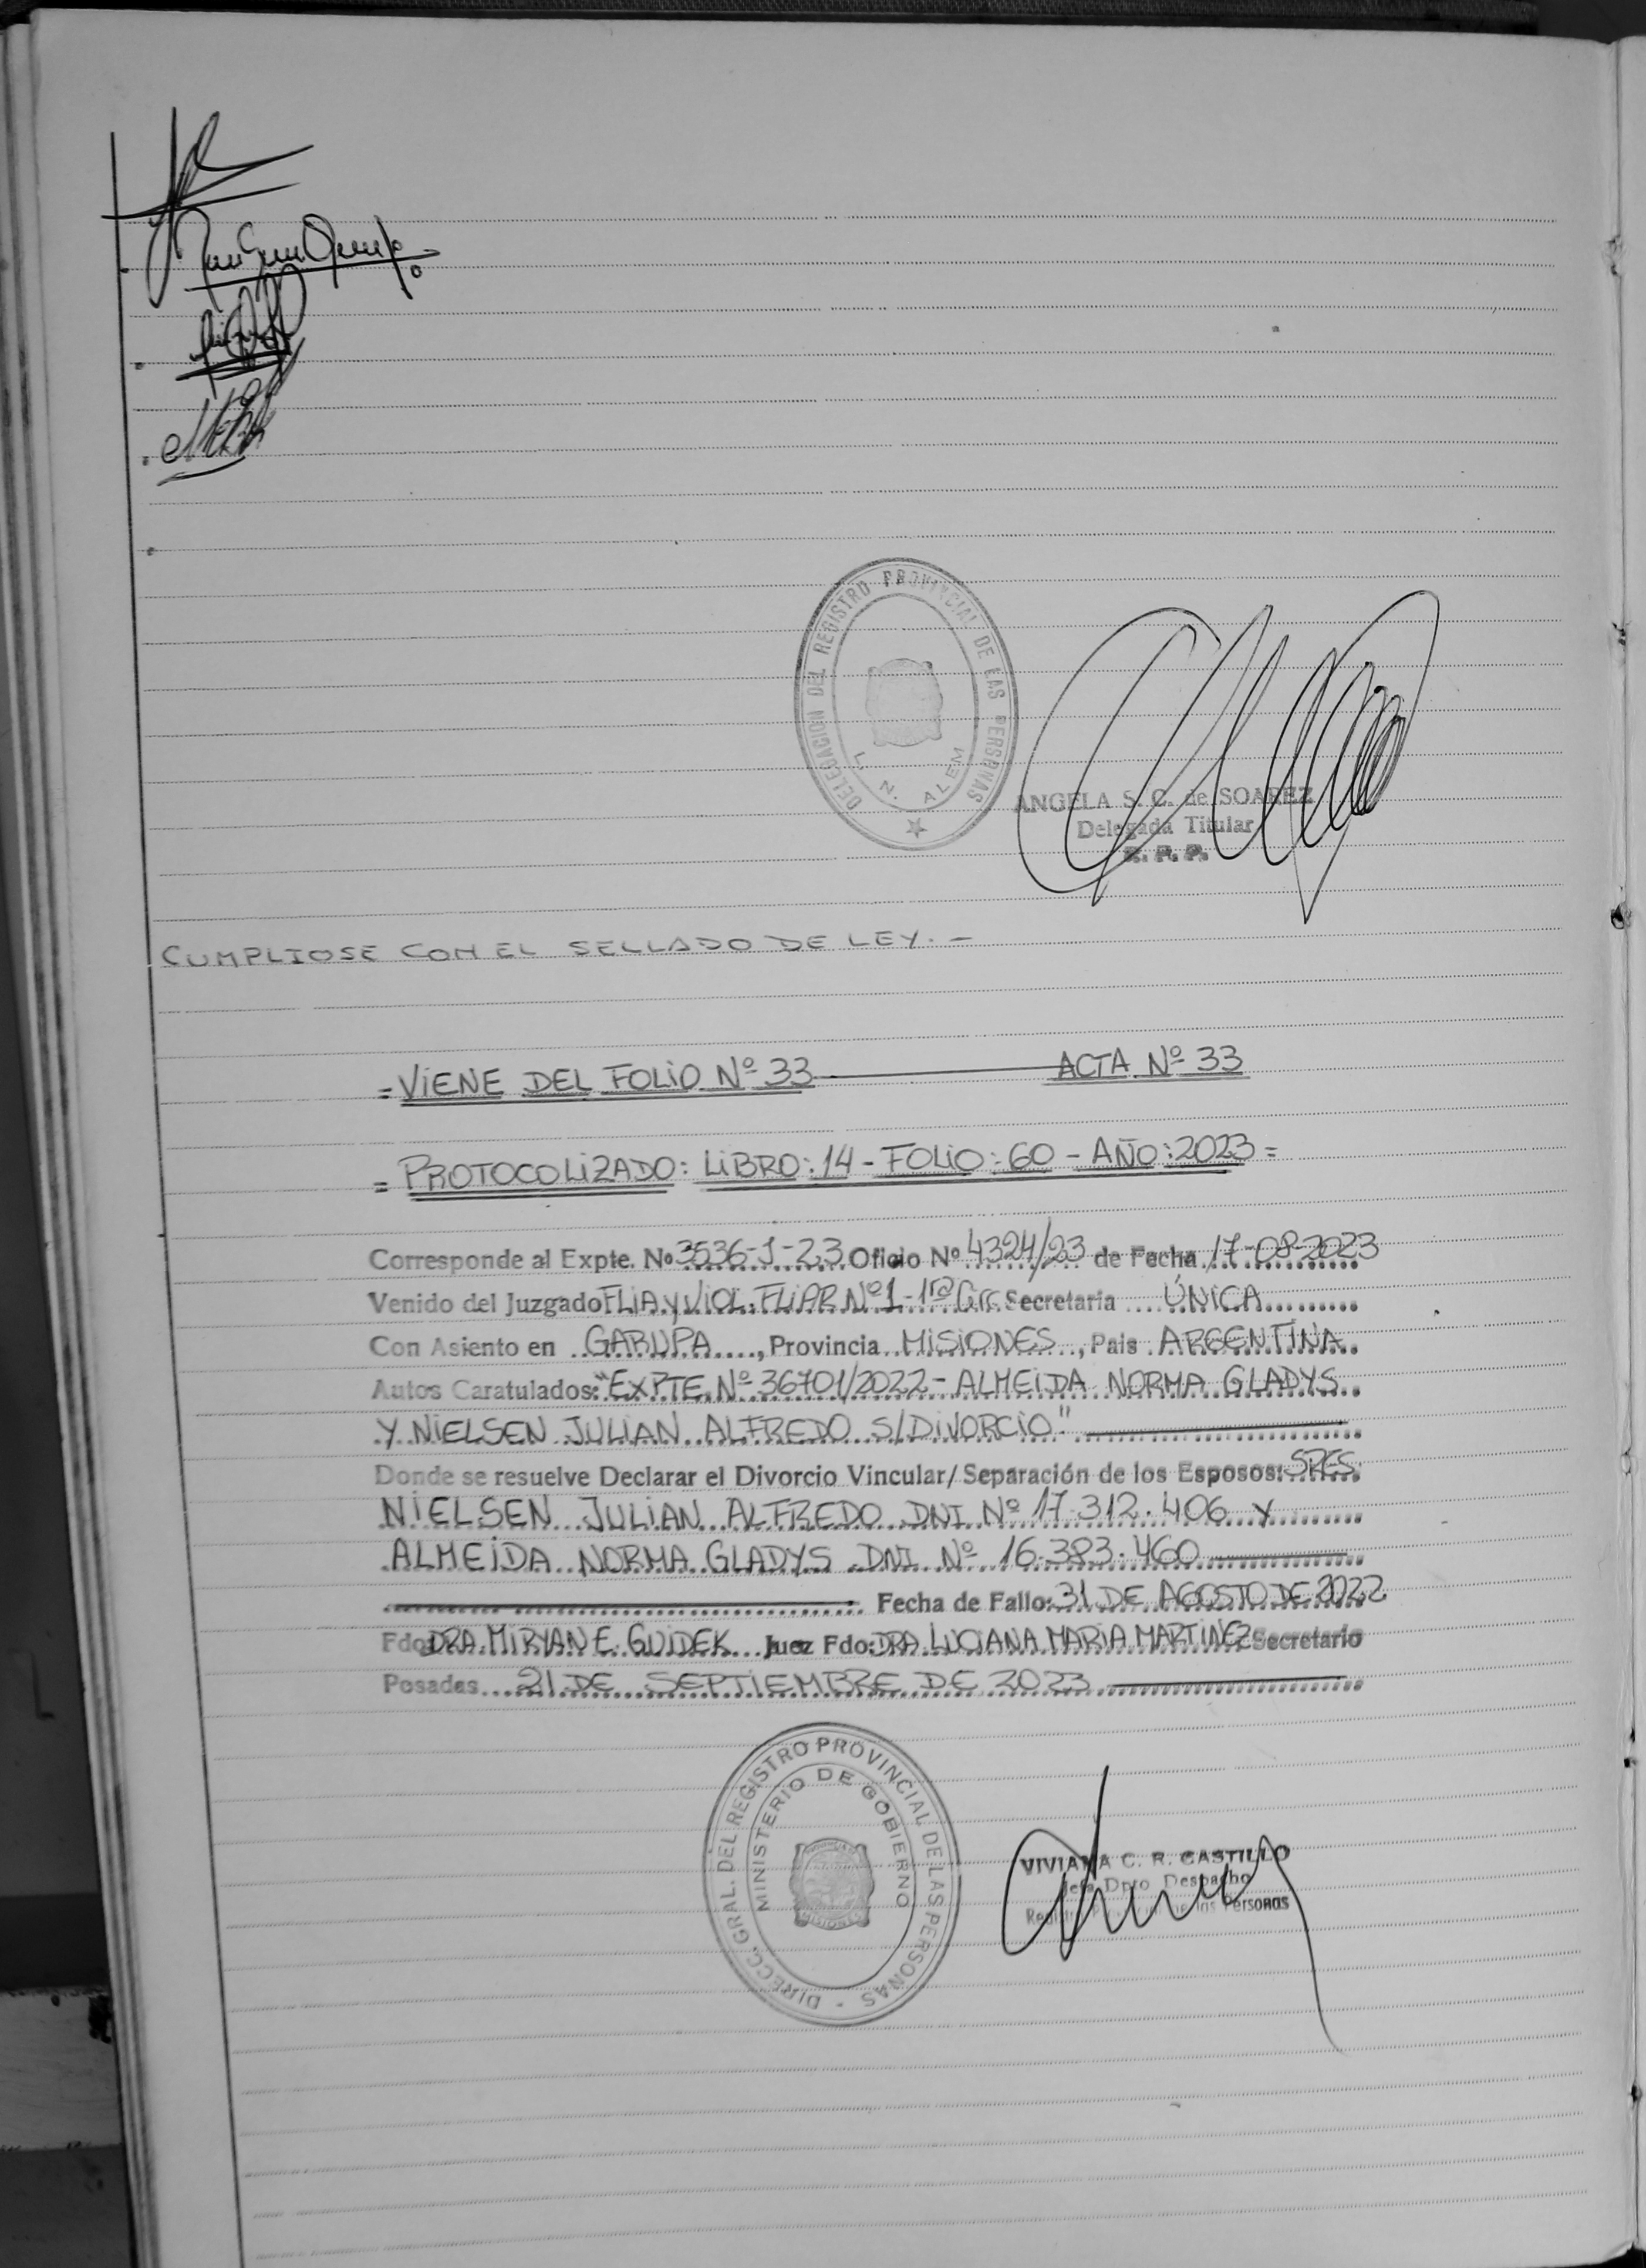 DELEGACION DEL REGISTRO PROVINCIAL DE LAS PERSONAS
L. N. ALEM
ANGELA S. C. de SOAREZ
Delegada Titular
R. P. P.
CUMPLIOSE CON EL SELLADO DE LEY.-
=VIENE DEL FOLIO Nº 33 ACTA Nº 33
= PROTOCOLIZADO: LIBRO: 14 - FOLIO: 60 - AÑO: 2023 =
Corresponde al Expte. Nº 3536-J-23 Oficio Nº 4324/23 de Fecha 17-08-2023
Venido del Juzgado FLIA. y VIOL. FLIAR Nº1-1ra Circ. Secretaria ÚNICA
Con Asiento en GARUPA, Provincia MISIONES, Pais ARGENTINA
Autos Caratulados: "EXPTE. Nº 36701/2022 - ALMEIDA NORMA GLADYS
Y NIELSEN JULIAN ALFREDO S/DIVORCIO"
Donde se resuelve Declarar el Divorcio Vincular/Separación de los Esposos: SRES.
NIELSEN JULIAN ALFREDO DNI Nº 17.312.406 Y
ALMEIDA NORMA GLADYS DNI Nº 16.383.460
Fecha de Fallo: 31 DE AGOSTO DE 2022
Fdo. DRA. MIRYAN E. GUIDEK Juez Fdo: DRA LUCIANA MARIA MARTINEZ Secretario
Posadas 21 DE SEPTIEMBRE DE 2023
DIRECC. GRAL. DEL REGISTRO PROVINCIAL DE LAS PERSONAS -
MINISTERIO DE GOBIERNO
MISIONES
VIVIANA C. R. CASTILLO
Jefa Dpto Despacho
de las Personas